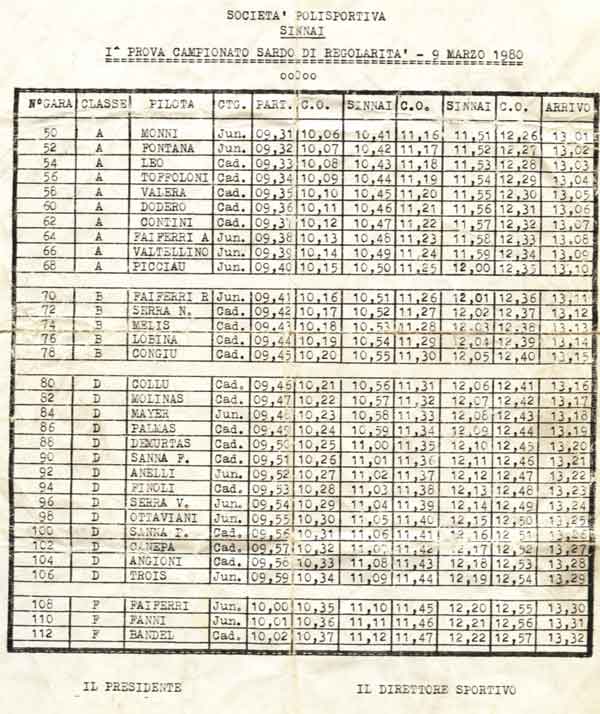 SOCIETA' POLISPORTIVA
SINNAI
I^ PROVA CAMPIONATO SARDO DI REGOLARITA' - 9 MARZO 1980
ooOoo
N°GARA CLASSE PILOTA CTG. PART. C.O. SINNAI C.O. SINNAI C.O. ARRIVO
50 A MONNI Jun. 09,31 10,06 10,41 11,16 11,51 12,26 13,01
52 A FONTANA Jun. 09,32 10,07 10,42 11,17 11,52 12,27 13,02
54 A LEO Cad. 09,33 10,08 10,43 11,18 11,53 12,28 13,03
56 A TOFFOLONI Cad. 09,34 10,09 10,44 11,19 11,54 12,29 13,04
58 A VALERA Cad. 09,35 10,10 10,45 11,20 11,55 12,30 13,05
60 A DODERO Cad. 09,36 10,11 10,46 11,21 11,56 12,31 13,06
62 A CONTINI Cad. 09,37 10,12 10,47 11,22 11,57 12,32 13,07
64 A FAIFERRI A Jun. 09,38 10,13 10,48 11,23 11,58 12,33 13,08
66 A VALTELLINO Jun. 09,39 10,14 10,49 11,24 11,59 12,34 13,09
68 A PICCIAU Jun. 09,40 10,15 10,50 11,25 12,00 12,35 13,10
70 B FAIFERRI R Jun. 09,41 10,16 10,51 11,26 12,01 12,36 13,11
72 B SERRA N. Cad. 09,42 10,17 10,52 11,27 12,02 12,37 13,12
74 B MELIS Cad. 09,43 10,18 10,53 11,28 12,03 12,38 13,13
76 B LOBINA Cad. 09,44 10,19 10,54 11,29 12,04 12,39 13,14
78 B CONGIU Cad. 09,45 10,20 10,55 11,30 12,05 12,40 13,15
80 D COLLU Cad. 09,46 10,21 10,56 11,31 12,06 12,41 13,16
82 D MOLINAS Cad. 09,47 10,22 10,57 11,32 12,07 12,42 13,17
84 D MAYER Jun. 09,48 10,23 10,58 11,33 12,08 12,43 13,18
86 D PALMAS Cad. 09,49 10,24 10,59 11,34 12,09 12,44 13,19
88 D DEMURTAS Cad. 09,50 10,25 11,00 11,35 12,10 12,45 13,20
90 D SANNA F. Cad. 09,51 10,26 11,01 11,36 12,11 12,46 13,21
92 D ANELLI Jun. 09,52 10,27 11,02 11,37 12,12 12,47 13,22
94 D PINOLI Cad. 09,53 10,28 11,03 11,38 12,13 12,48 13,23
96 D SERRA V. Jun. 09,54 10,29 11,04 11,39 12,14 12,49 13,24
98 D OTTAVIANI Jun. 09,55 10,30 11,05 11,40 12,15 12,50 13,25
100 D SANNA Cad. 09,56 10,31 11,06 11,41 12,16 12,51 13,26
102 D CANEPA Cad. 09,57 10,32 11,07 11,42 12,17 12,52 13,27
104 D ANGIONI Cad. 09,58 10,33 11,08 11,43 12,18 12,53 13,28
106 D TROIS Jun. 09,59 10,34 11,09 11,44 12,19 12,54 13,29
108 F FAIFERRI Jun. 10,00 10,35 11,10 11,45 12,20 12,55 13,30
110 F FANNI Jun. 10,01 10,36 11,11 11,46 12,21 12,56 13,31
112 F BANDEL Cad. 10,02 10,37 11,12 11,47 12,22 12,57 13,32
IL PRESIDENTE IL DIRETTORE SPORTIVO